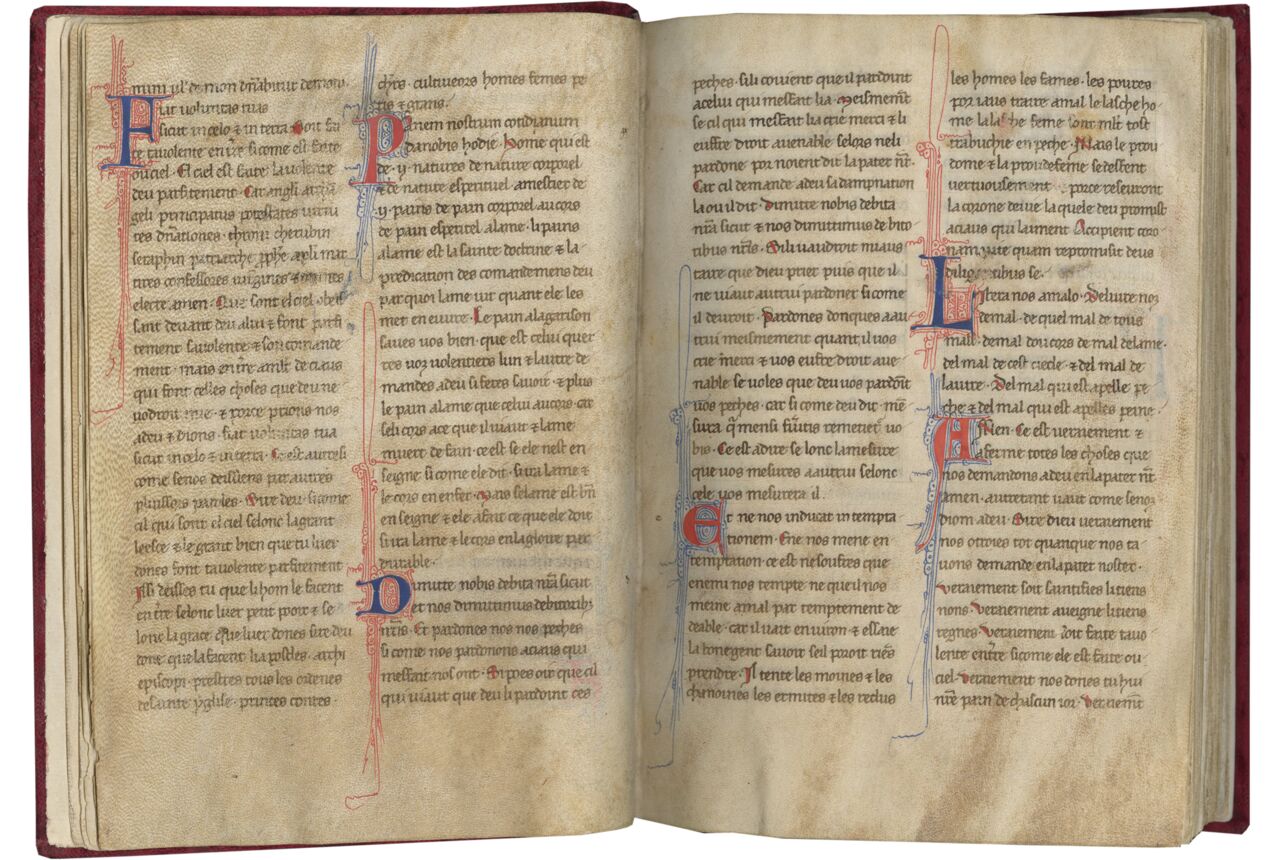 mini ul' de mon
Fiat voluntas tua
sicut in celo & in terra. Soit fai
te ta volente en t're si come est faite
ou ciel. El ciel est faite la volente
deu parfitement. Car angli archan
geli principatus potestates virtu
tes d'nationes. throni cherubin
seraphin patriarche p'phe apl'i mar
tires confessores virgines & omnes
electi amen. Que sont el ciel obeis
sant devant deu a lui & font parfi
tement sa volente & son comande
ment. mais en t're a mlt' de ciaus
qui font celles choses que deu ne
vodroit mie. & por ce prions nos
a deu & dions. fiat voluntas tua
sicut in celo & in terra. Ce est autresi
come se nos deissiens par autres
plusiors paroles. Sire deu si come
cil qui sont el ciel selonc la grant
leesce & le grant bien que tu lor
dones font ta volente parfitement
Issi deisses tu que li hom le facent
en t're selonc lor petit pooir & se
lonc la grace que lor dones sire deu
done que la facent li apostles. archi
episcopi. prestres tous les ordenes
de sainte yglise. princes contes.
ch'rs. cultiveors homes femes pe
tis & grans.
Panem nostrum cotidianum
da nobis hodie. Home qui est
de .ij. natures de nature corporel
& de nature esperituel a mestier de
.ij. pains de pain corporel au cors
de pain esperitel a lame. li pains
a lame est la sainte doctrine & la
predication des comandemens deu
par quoi lame vit quant ele les
met en euvre. Le pain a la garison
saves vos bien. que est celui quer
res vos volentiers lun & lautre de
mandes a deu si feres savoir. & plus
le pain a lame que celui au cors. car
se li cors a ce que il viaut & lame
muert de fain. ce est se ele n'est en
seignie si come ele dit. si va lame &
le cors en enfer. Mais se lame est bn'
enseignie & ele a fait ce que ele doit
si va lame & le cors en la gloire par
durable.
Dimitte nobis debita nr'a sicut
et nos dimittimus debitorib'
nr'is. Et pardones nos nos pechies
si come nos pardonons a ciaus qui
mesfait nos ont. Si poes oir que cil
qui viaut que deu li pardoint ces
pechies. si li covient que il pardoint
a celui qui mesfait li a. Meismement
se cil qui mesfait li a crie merci & li
euffre droit avenable selors ne li
pardone por noient dit la pater nr'.
Car cil demande a deu sa dampnation
la ou il dit. Dimitte nobis debita
nr'a sicut & nos dimittimus debito
ribus nr'is. Si li vaudroit miaus
taire que dieu prier puis que il
ne viaut autrui pardoner si come
il devroit. Pardones donques a au
trui meismement quant il vos
crie merci & vos euffre droit ave
nable se voles que deu vos pardoit
vos pechies. car si come deu dit. men
sura q' mensi fu'itis remetiet' vo
bis. Ce est a dire se lonc la mesure
que vos mesures a autrui selonc
cele vos mesurera il.
Et ne nos inducat in tempta
tionem. E ne nos mene en
temptation. ce est ne soufres que
enemi nos tempte ne que il nos
meine a mal par temptement de
deable. car il vait environ & essaie
la bone gent savoir se il poroit riens
prendre. Il tente les moines & les
chanoines les ermites & les reclus
les homes les fames. les povres
por iaus traire a mal. le lasche ho
me la lasche feme sont mlt' tost
trabuchie en peche. Mais le prou
dome & la proudefeme se deffent
vertuousement. por ce resevront
la corone de vie la quele deu promist
a ciaus qui laiment. Accipient coro
nam vite quam repromisit deus
diligentibus se.
Libera nos a malo. Delivre nos
de mal. de quel mal de tous
maus. de mal dou cors de mal de lame.
del mal de cest siecle & del mal de
lautre. Del mal qui est apelle pe
che & del mal qui est apelles peine.
Amen. Ce est veraiement &
aferme totes les choses que
nos demandons a deu en la pater nr'
amen. autretant vaut come se nos
diom a deu. Sire dieu veraiement
nos otroies tot quanque nos ta
vons demande en la pater noster.
Veraiement soit saintifies li tiens
nons. Veraiement aveigne li tiens
regnes. Veraiement soit faite ta vo
lente en t're si come ele est faite ou
ciel. Veraiement nos dones tu hui
nr'e pain de chascun ior. Veraiem't